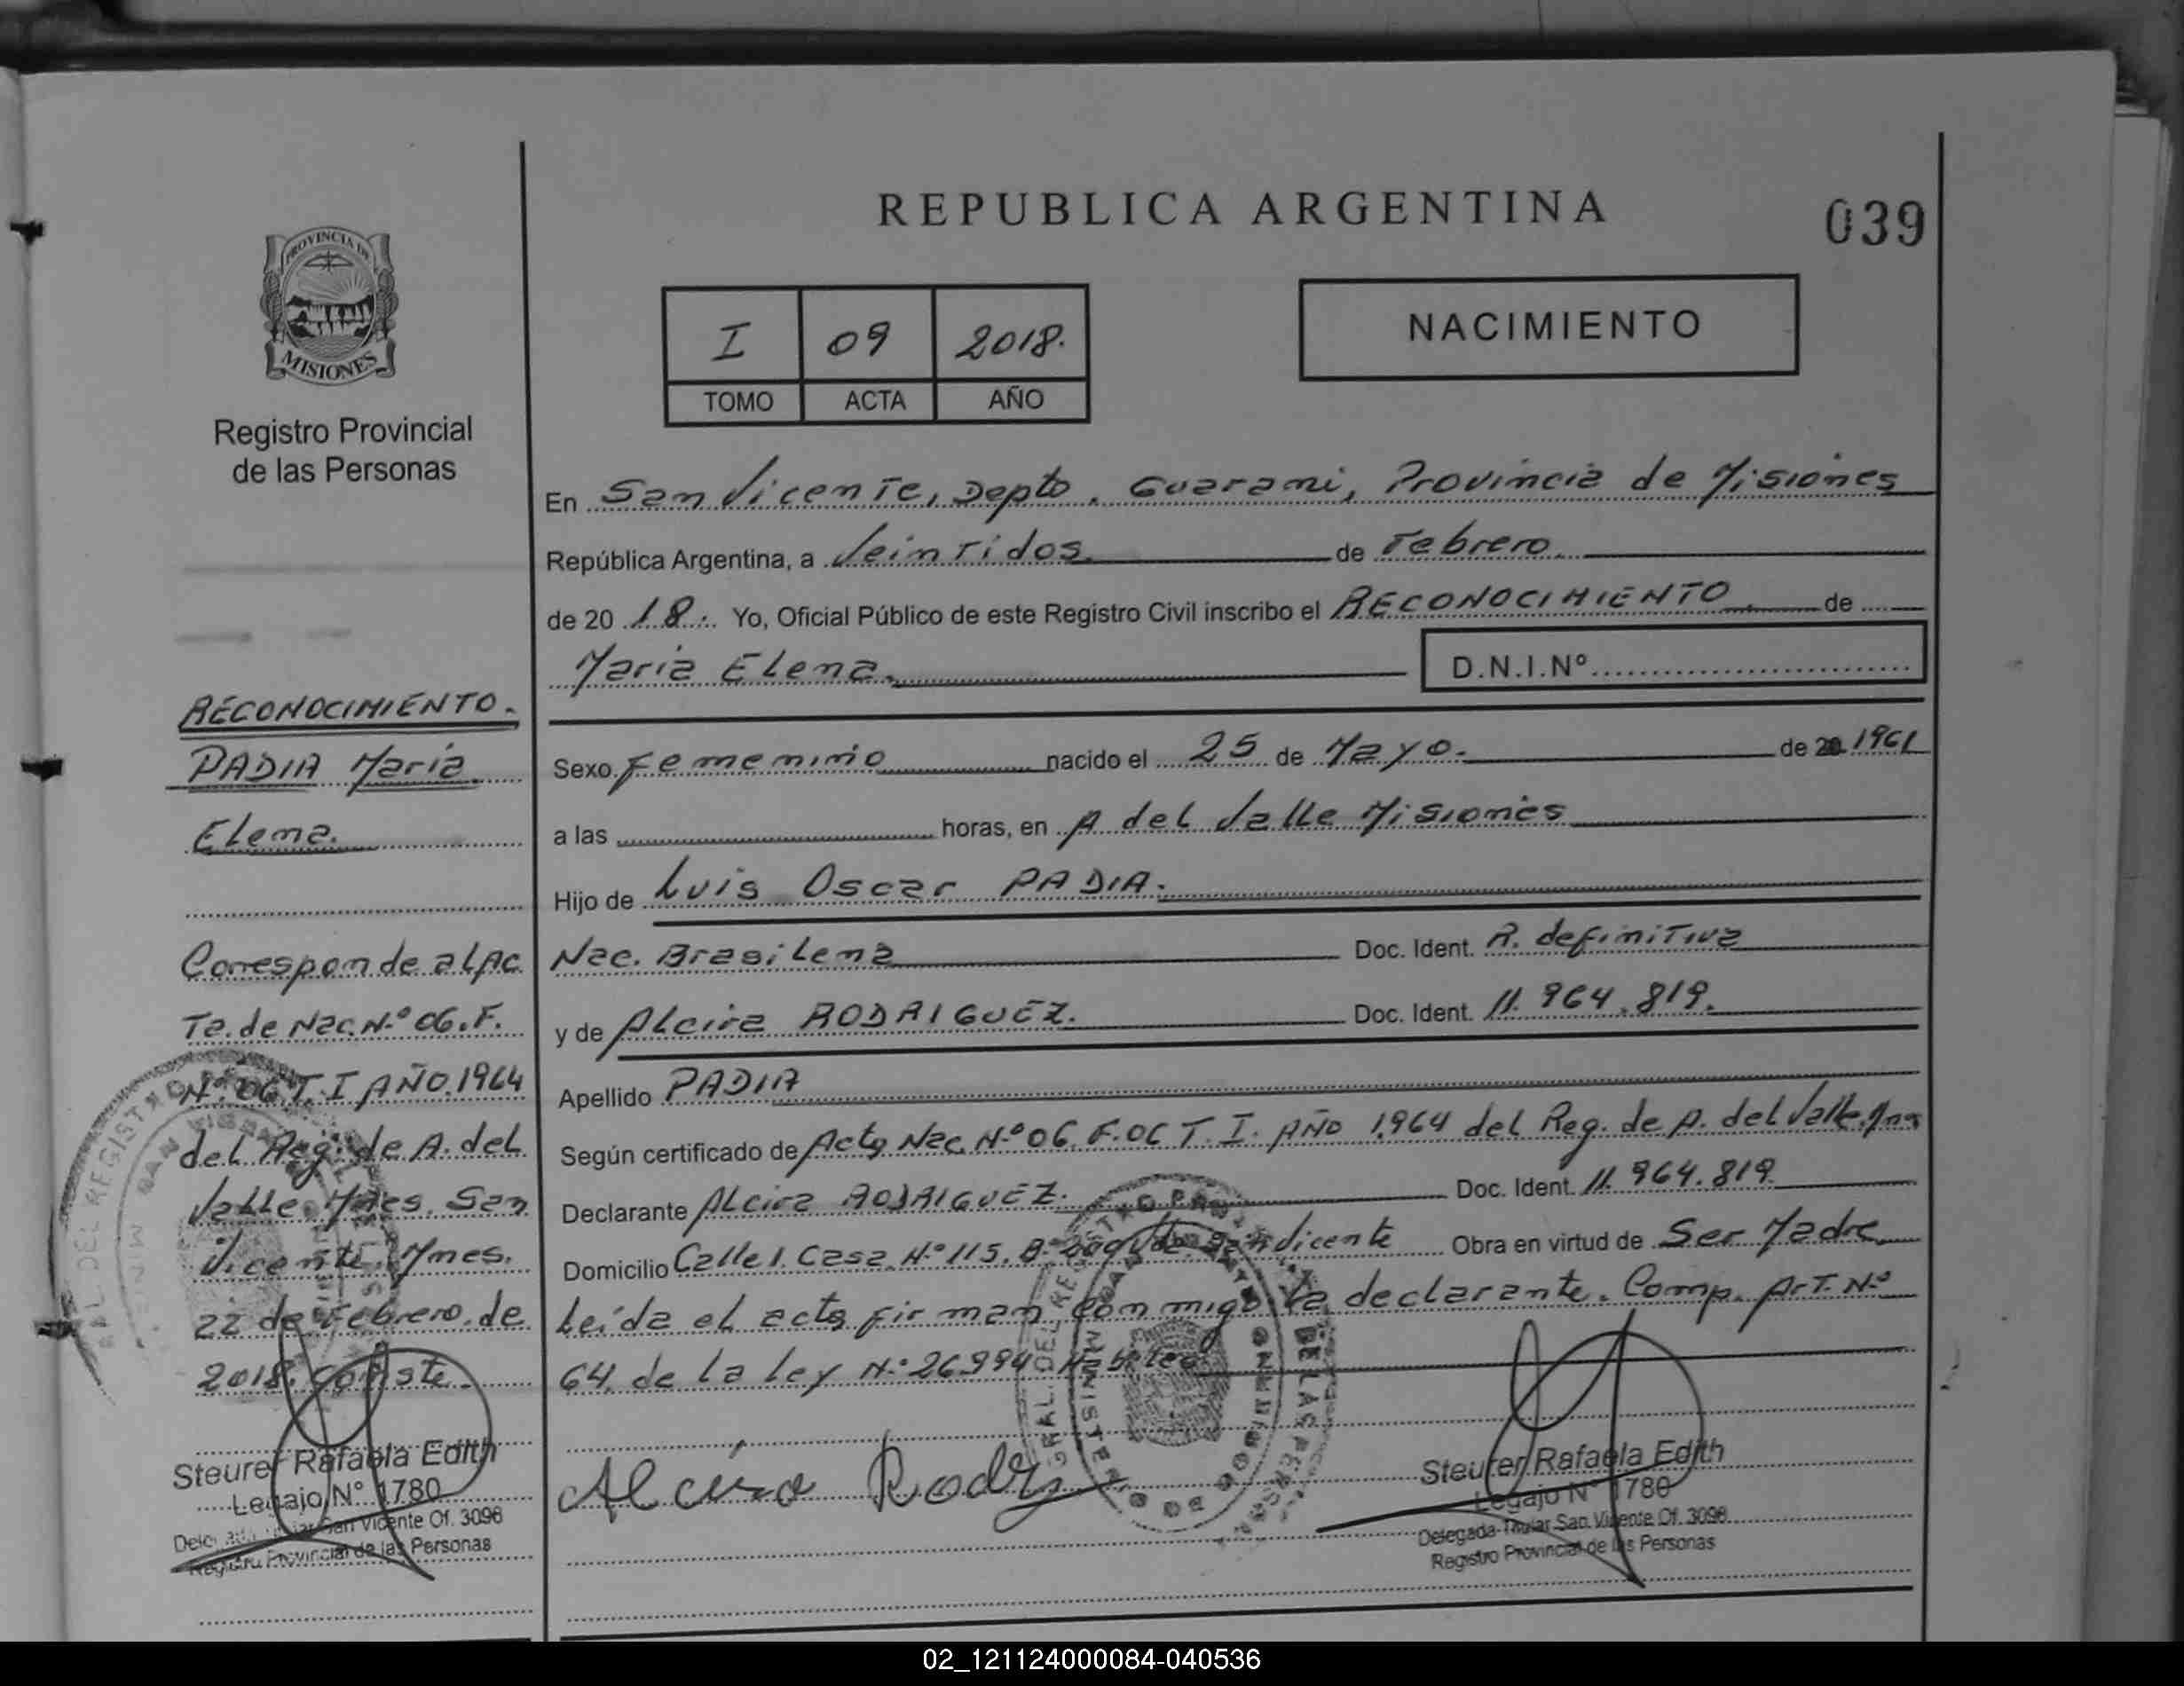 REPUBLICA ARGENTINA
039
PROVINCIA DE
MISIONES
Registro Provincial
de las Personas
I 09 2018.
TOMO ACTA AÑO
NACIMIENTO
En San Vicente, Depto. Guarani, Provincia de Misiones
República Argentina, a Veintidos de Febrero
de 20 18. Yo, Oficial Público de este Registro Civil inscribo el RECONOCIMIENTO de
Maria Elena. D.N.I.Nº
Sexo Femenino nacido el 25 de Mayo. de 20 1961
a las horas, en A del Valle Misiones
Hijo de Luis Oscar PADIA.
Nac. Brasilena Doc. Ident. R. definitiva
y de Alcira RODRIGUEZ. Doc. Ident. 11.964.819.
Apellido PADIA
Según certificado de Acta Nac. Nº 06. F. 06 T. I. AÑO 1964 del Reg. de A. del Valle. Mns
Declarante Alcira RODRIGUEZ. Doc. Ident. 11.964.819
Domicilio Calle 1. Casa Nº 115. Bº Vicente Obra en virtud de Ser Madre
Leída el acta firman conmigo la declarante. Comp. Art. Nº
64 de la Ley Nº 26994
Alcira Rodz
Steurer Rafaela Edith
Legajo Nº 1780
Delegada Titular San Vicente Of. 3098
Registro Provincial de las Personas
RECONOCIMIENTO.
PADIA Maria
Elena.
Corresponde al Ac
Ta. de Nac. Nº 06. F.
Nº 06 T. I AÑO 1964
del Reg. de A. del
Valle Mnes. San
Vicente Mnes.
22 de Febrero de
2018. Conste
Steurer Rafaela Edith
Legajo Nº 1780
San Vicente Of. 3098
Registro Provincial de las Personas
02_121124000084-040536